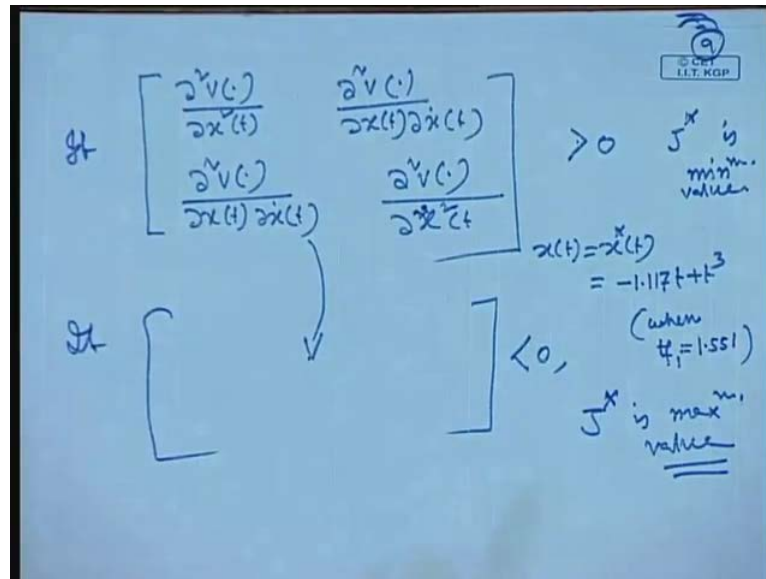 9
© CET
I.I.T. KGP
If [ ∂²V(·)/∂x²(t) ∂²V(·)/∂x(t)∂ẋ(t) ] > 0 J* is
[ ∂²V(·)/∂x(t)∂ẋ(t) ∂²V(·)/∂ẋ²(t ] minᵐ.
value
x(t) = x*(t)
= -1.117t+t³
(when
t_{f1}=1.551)
If [ ] < 0,
J* is maxᵐ.
value